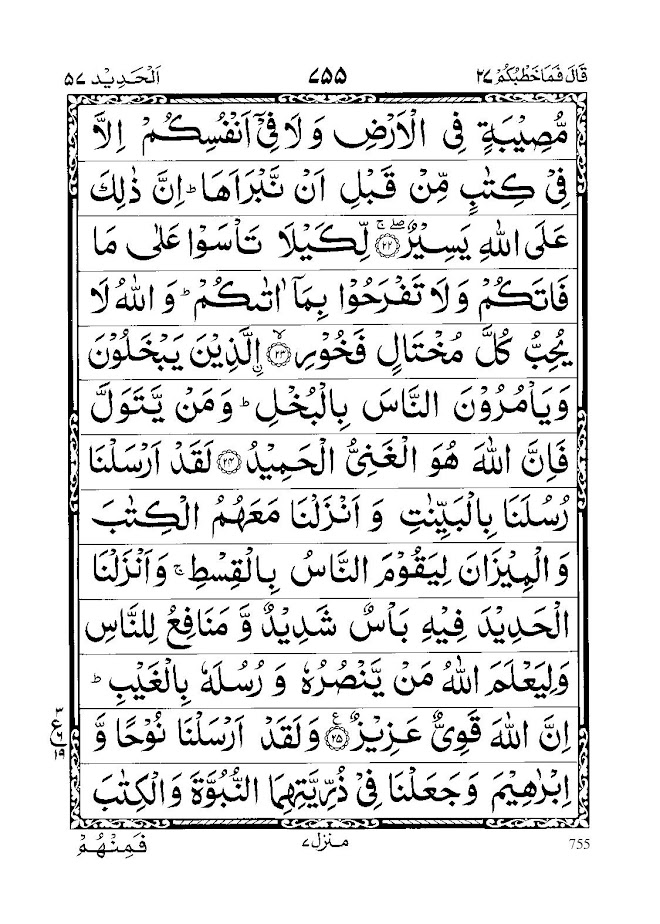 قَالَ فَمَا خَطْبُكُمْ ٢٧ ٧٥٥ اَلْحَدِيْد ٥٧
مُّصِيْبَةٍ فِي الْاَرْضِ وَ لَا فِيْۤ اَنْفُسِكُمْ اِلَّا
فِيْ كِتٰبٍ مِّنْ قَبْلِ اَنْ نَّبْرَاَهَا ؕ اِنَّ ذٰلِكَ
عَلَى اللّٰهِ يَسِيْرٌ ۖۚ ﴿٢٢﴾ لِّكَيْلَا تَاْسَوْا عَلٰى مَا
فَاتَكُمْ وَ لَا تَفْرَحُوْا بِمَاۤ اٰتٰىكُمْ ؕ وَ اللّٰهُ لَا
يُحِبُّ كُلَّ مُخْتَالٍ فَخُوْرِ ۙ ﴿٢٣﴾ ۨالَّذِيْنَ يَبْخَلُوْنَ
وَ يَاْمُرُوْنَ النَّاسَ بِالْبُخْلِ ؕ وَ مَنْ يَّتَوَلَّ
فَاِنَّ اللّٰهَ هُوَ الْغَنِيُّ الْحَمِيْدُ ﴿٢٤﴾ لَقَدْ اَرْسَلْنَا
رُسُلَنَا بِالْبَيِّنٰتِ وَ اَنْزَلْنَا مَعَهُمُ الْكِتٰبَ
وَ الْمِيْزَانَ لِيَقُوْمَ النَّاسُ بِالْقِسْطِ ۚ وَ اَنْزَلْنَا
الْحَدِيْدَ فِيْهِ بَاْسٌ شَدِيْدٌ وَّ مَنَافِعُ لِلنَّاسِ
وَ لِيَعْلَمَ اللّٰهُ مَنْ يَّنْصُرُهٗ وَ رُسُلَهٗ بِالْغَيْبِ ؕ
اِنَّ اللّٰهَ قَوِيٌّ عَزِيْزٌ ﴿٢٥﴾ ع وَ لَقَدْ اَرْسَلْنَا نُوْحًا وَّ
٣ ع ٦ ١٩
اِبْرٰهِيْمَ وَ جَعَلْنَا فِيْ ذُرِّيَّتِهِمَا النُّبُوَّةَ وَ الْكِتٰبَ
755 منزل ٧ فَمِنْهُمْ